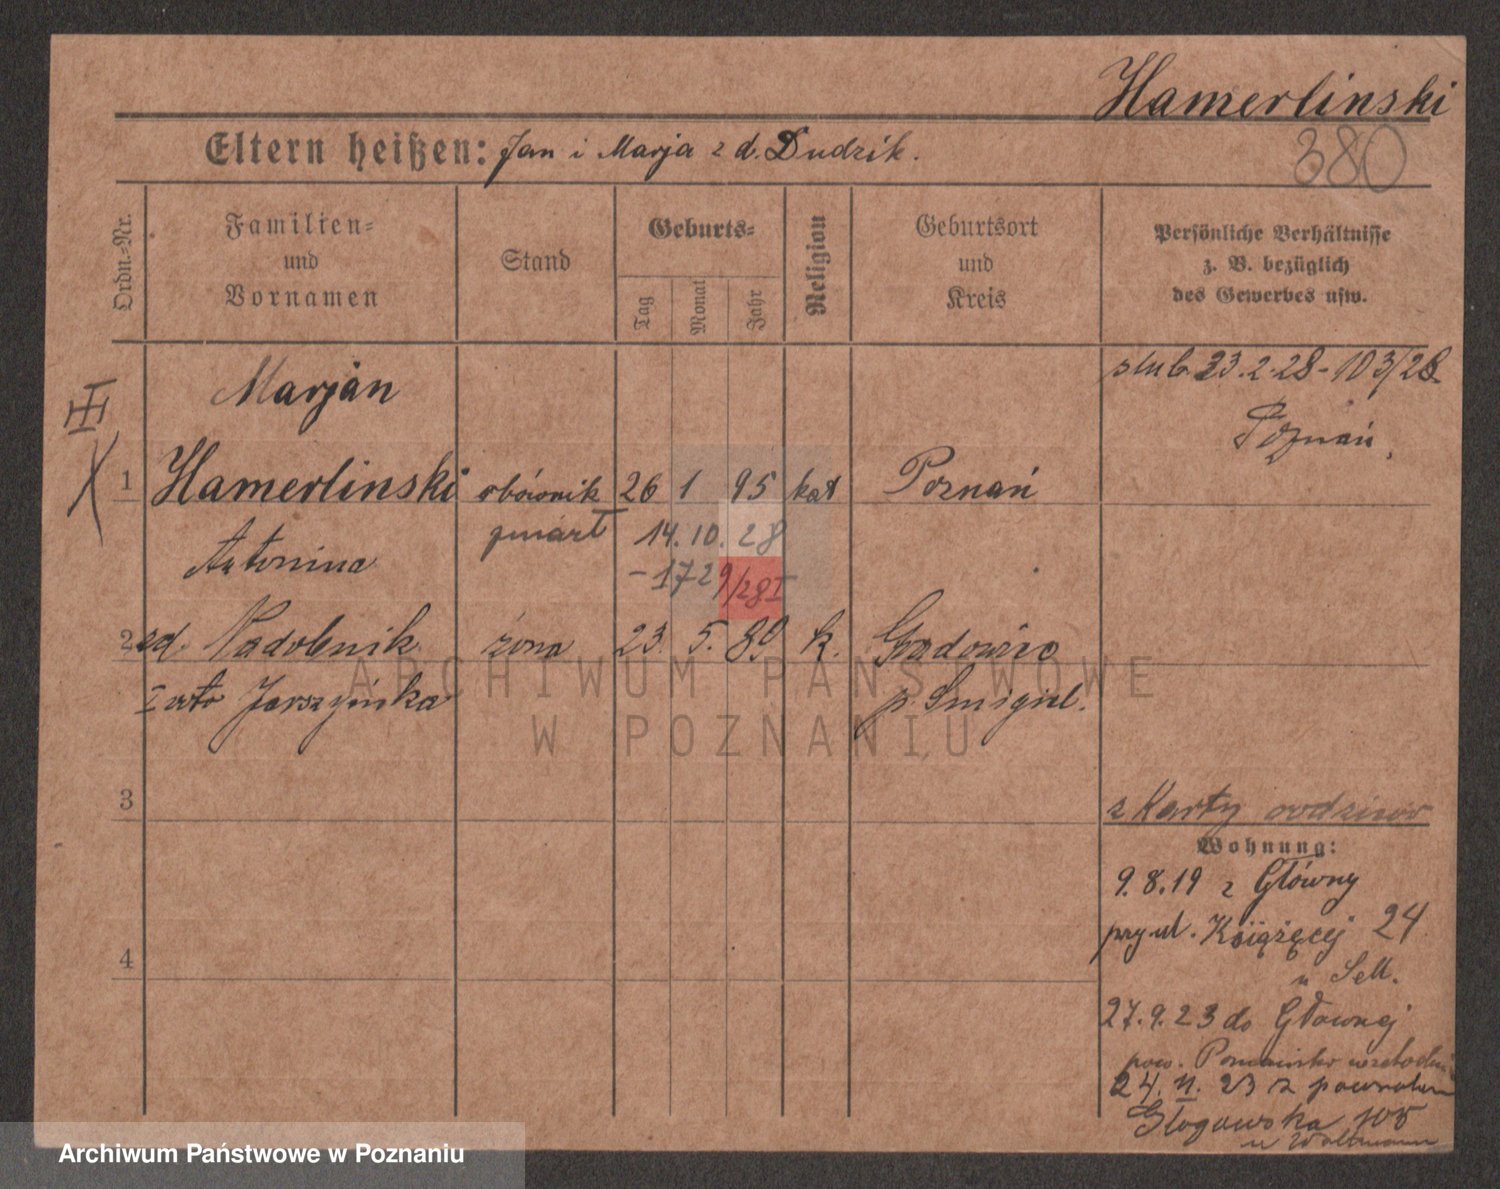 Hamerlinski
380
Eltern heißen: Jan i Marja z d. Dudzik.
Ordn.-Nr.
Familien-
und
Vornamen
Stand
Geburts-
Tag
Monat
Jahr
Religion
Geburtsort
und
Kreis
Persönliche Verhältnisse
z. B. bezüglich
des Gewerbes usw.
III
Marjan
1 Hamerlinski robownik 26 1 95 kat Poznań
zmarł 14. 10. 28
-1729/28 I
Antonina
2 zd. Nadobnik żona 23. 5. 89 k. Gradowice
I voto Jarszyńska p. Śmigiel.
3
4
ślub 23.2.28-103/28
Poznań,
z Karty rodzinn
Wohnung:
9.8.19 z Główny
przy ul. Książęcej 24
u Sell.
27.9.23 do Głównej
pow. Poznańsko wschodni
24. 11. 23 z powrotem
Głogowska 105
ARCHIWUM PAŃSTWOWE
W POZNANIU
Archiwum Państwowe w Poznaniu